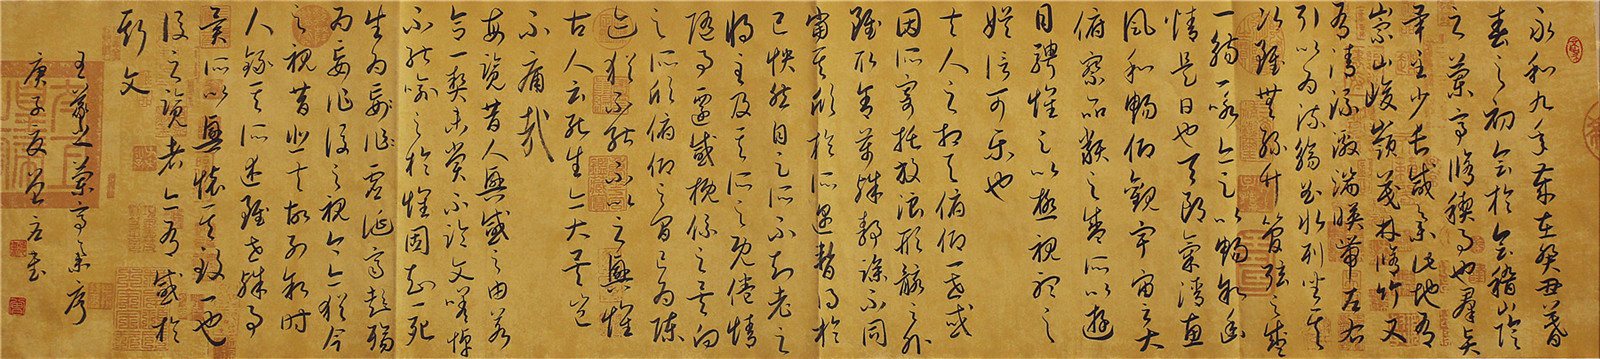 永和九年歲在癸丑暮
春之初會於會稽山陰
之蘭亭脩稧事也群賢
畢至少長咸集此地有
崇山峻嶺茂林脩竹又
有清流激湍暎帶左右
引以為流觴曲水列坐其
次雖無絲竹管弦之盛
一觴一詠亦足以暢敘幽
情是日也天朗氣清惠
風和暢仰觀宇宙之大
俯察品類之盛所以遊
目騁懷足以極視聽之
娛信可樂也
夫人之相與俯仰一世或
因所寄托放浪形骸之外
雖取舍萬殊靜躁不同
當其欣於所遇暫得於
己怏然自足不知老之
將至及其所之既倦情
隨事遷感慨係之矣向
之所欣俯仰之間已為陳
迹猶不能不以之興懷
古人云死生亦大矣豈
不痛哉
每覽昔人興感之由若
合一契未嘗不臨文嗟悼
不能喻之於懷固知一死
生為妄作虛誕齊彭殤
為妄作後之視今亦猶今
之視昔悲夫故列敘時
人錄其所述雖世殊事
異所以興懷其致一也
後之覽者亦有感於
斯文
王羲之蘭亭集序
庚子夏